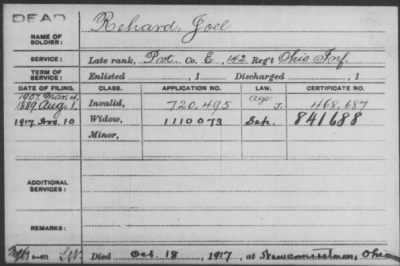 DEAD
NAME OF SOLDIER: Rehard, Joel
SERVICE: Late rank, Pvt. Co. E, 142 Reg't Ohio Inf.
TERM OF SERVICE: Enlisted , 1 Discharged , 1
DATE OF FILING. CLASS. APPLICATION NO. LAW. CERTIFICATE NO.
1907. Mar. 4. Age
1889 Aug. 1. Invalid, 720.495 J. 468,687
1917 Nov. 10 Widow, 1110073 Sep. 841688
Minor,
ADDITIONAL SERVICES:
REMARKS:
Died Oct. 18, 1917, at Newcomerstown, Ohio